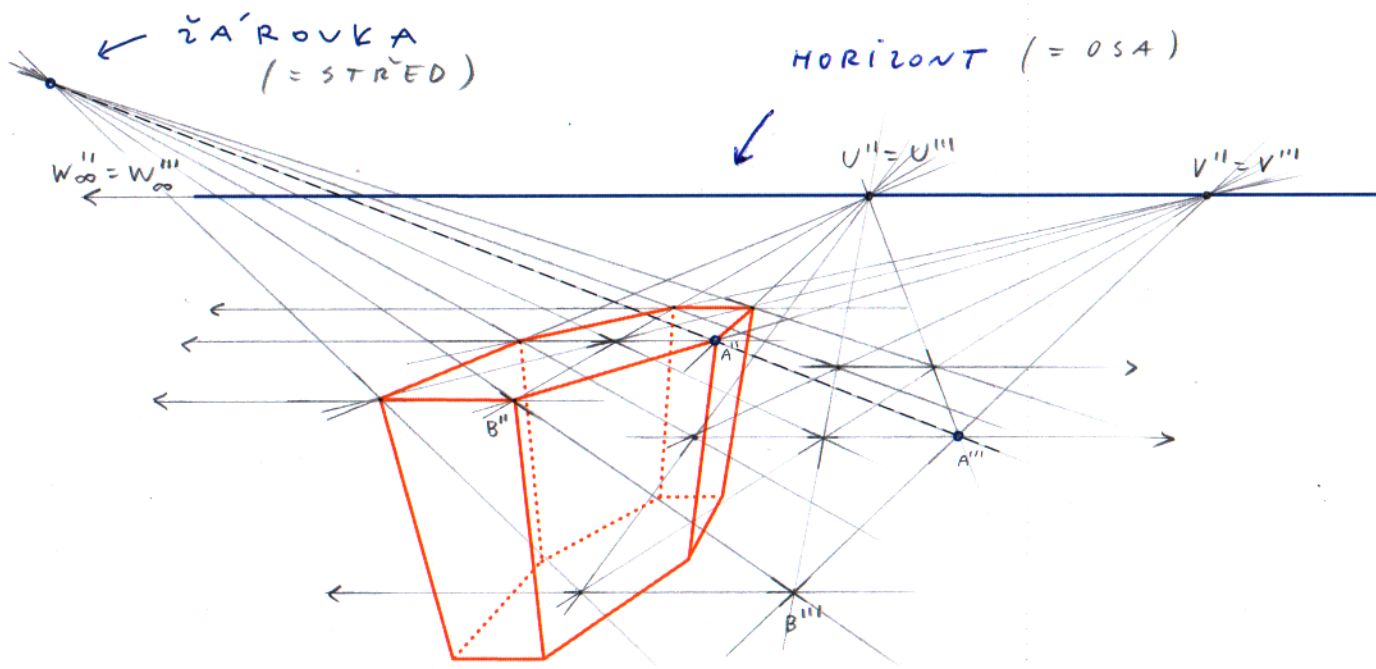 ŽÁROVKA
(= STŘED)
HORIZONT (= OSA)
W∞'' = W∞'''
U'' = U'''
V'' = V'''
A''
B''
A'''
B'''